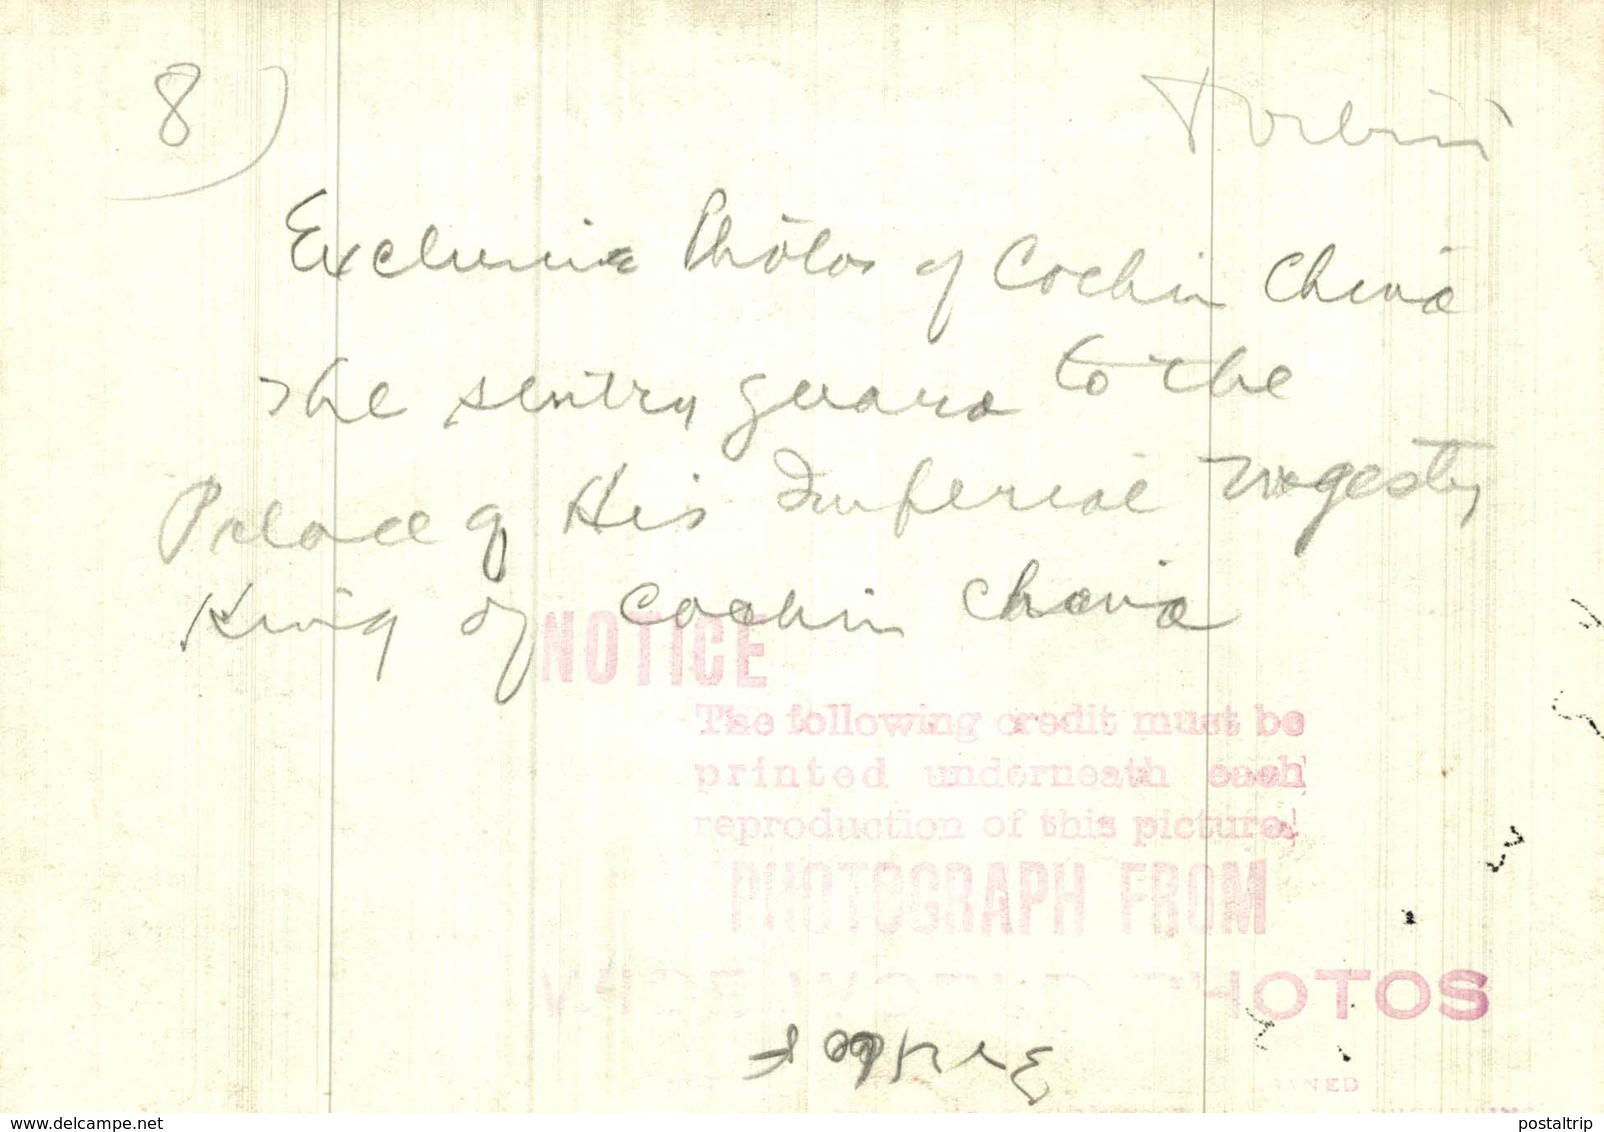 8)
Exclusive Photos of Cochin China
The sentry guard to the
Palace of His Imperial Magesty
King of Cochin China
NOTICE
The following credit must be
printed underneath each
reproduction of this picture.
PHOTOGRAPH FROM
WIDE WORLD PHOTOS
www.delcampe.net
postaltrip